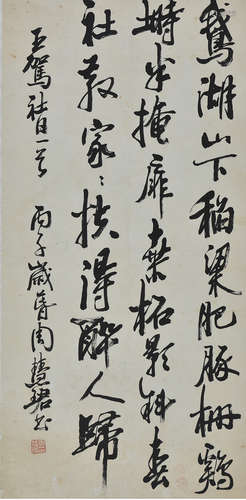 鵝湖山下稻粱肥豚栅鷄
埘半掩扉桑柘影斜春
社散家家扶得醉人歸
王駕社日一首 丙子歲春周慧珺書